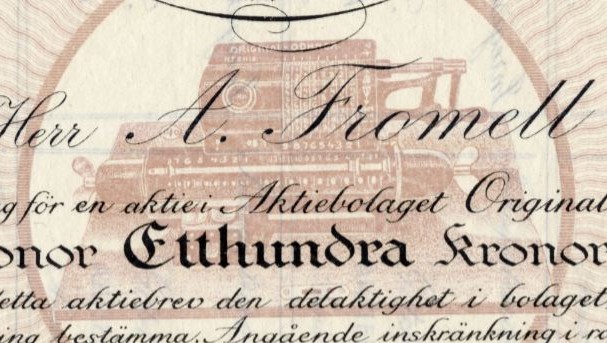 ORIGINAL-ODHNER
Herr A. Fromell
g för en aktie i Aktiebolaget Original
onor Etthundra Kronor
detta aktiebrev den delaktighet i bolaget
ing bestämma. Angående inskränkning i rä